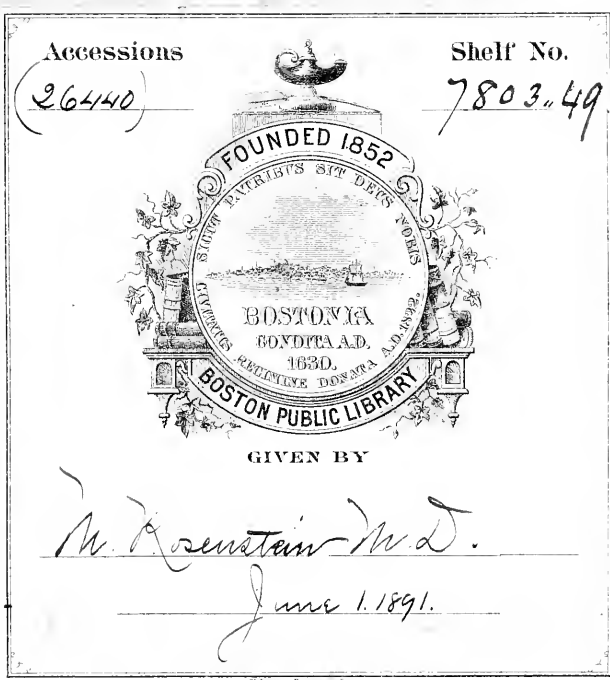 Accessions
Shelf No.
(26440)
7803.49
FOUNDED 1852
SICUT PATRIBUS SIT DEUS NOBIS
BOSTONIA
CONDITA A.D.
1630.
CIVITATIS REGIMINE DONATA A.D. 1822.
BOSTON PUBLIC LIBRARY
GIVEN BY
M. Rosenstein M.D.
June 1. 1891.